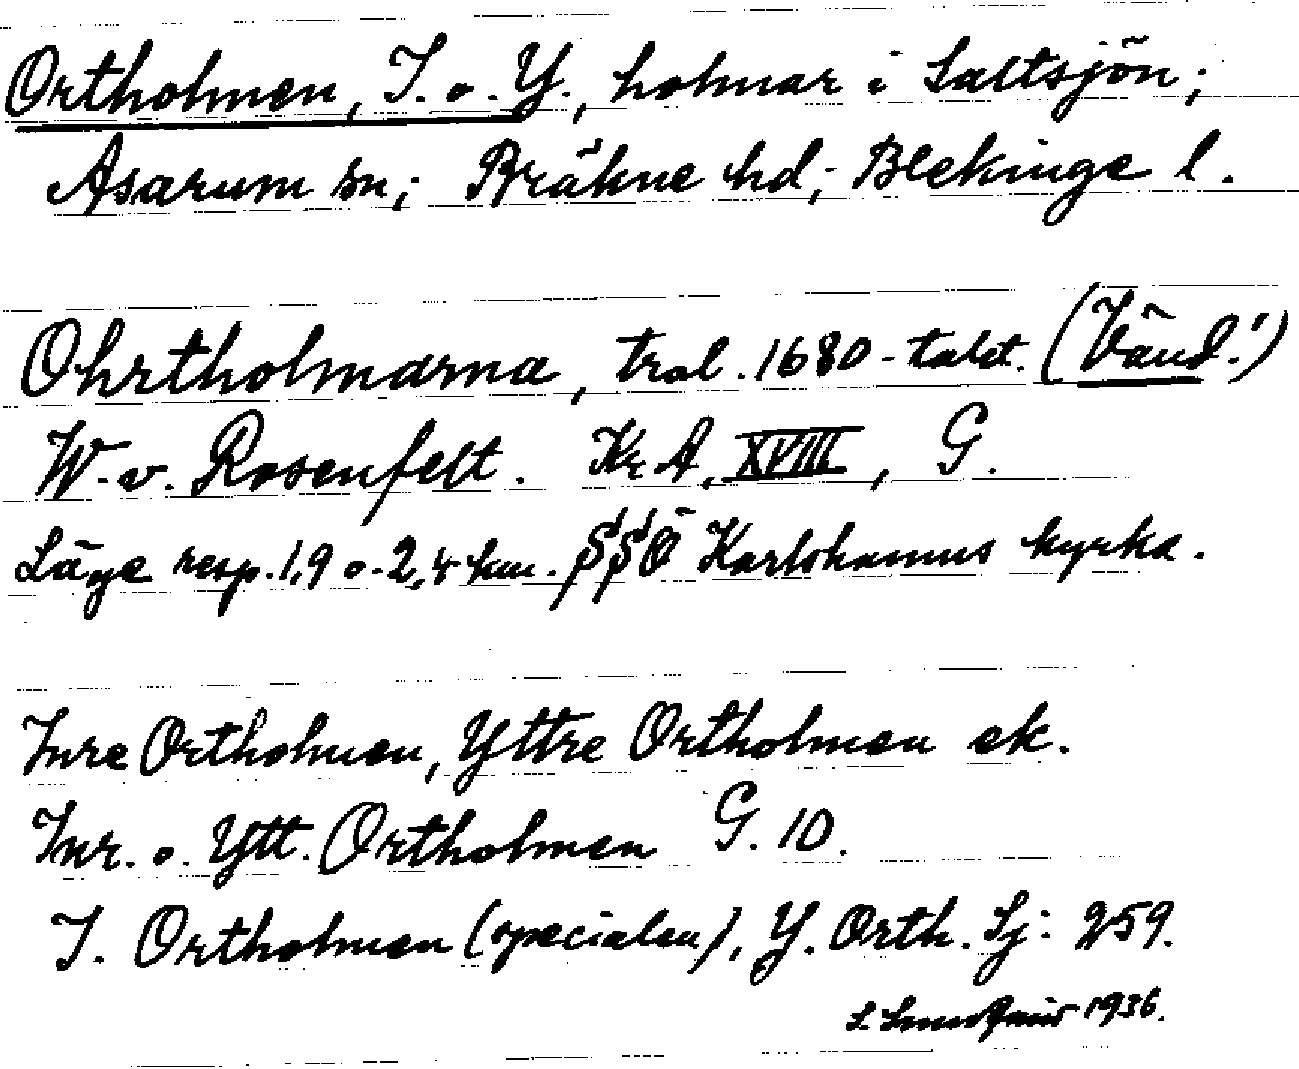 Ortholmen, I. o. Y., holmar i Saltsjön;
Asarum sn; Bräkne hd; Blekinge l.
Ohrtholmarna, trol. 1680-talet. (Vänd!)
W. v. Rosenfelt. Kr A, XVIII, G.
Läge resp. 1,9 o. 2,4 km. SSÖ Karlshamns kyrka.
Inre Ortholmen, Yttre Ortholmen ek.
Inr. o. Ytt. Ortholmen G. 10.
I. Ortholmen (specialen), Y. Orth. Sj: 259.
1936.